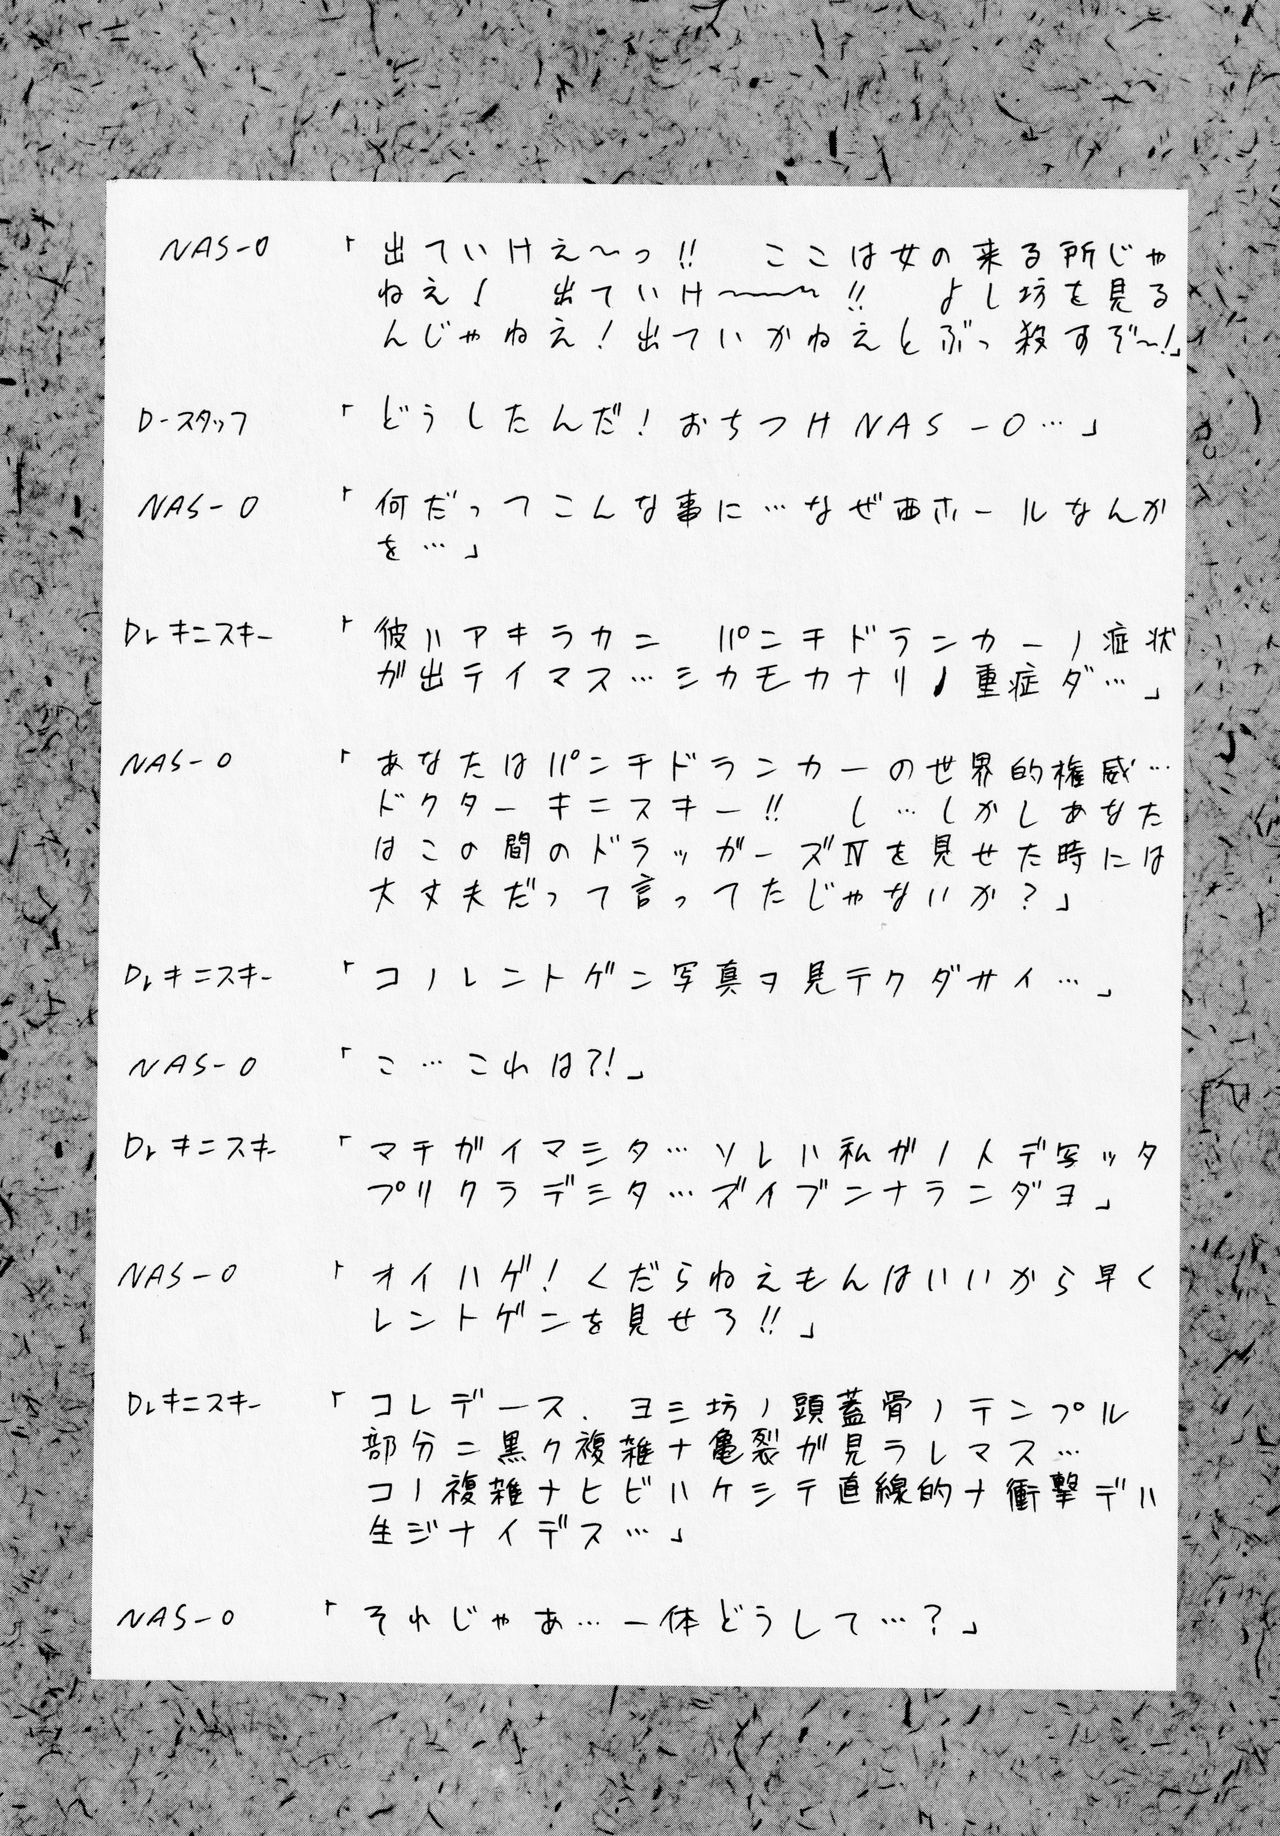 NAS-O 「出ていけえ〜っ!! ここは女の来る所じゃ
ねえ! 出ていけ〜〜〜!! よし坊を見る
んじゃねえ!出ていかねえとぶっ殺すぞ〜!」
D-スタッフ 「どうしたんだ!おちつけNAS-O…」
NAS-O 「何だってこんな事に…なぜ西ホールなんか
を…」
Dr.キニスキー 「彼ハアキラカニ パンチドランカーノ症状
が出テイマス…シカモカナリノ重症ダ…」
NAS-O 「あなたはパンチドランカーの世界的権威…
ドクターキニスキー!! し…しかしあなた
はこの間のドラッガーズⅣを見せた時には
大丈夫だって言ってたじゃないか?」
Dr.キニスキー 「コノレントゲン写真ヲ見テクダサイ…」
NAS-O 「こ…これは?!」
Dr.キニスキー 「マチガイマシタ…ソレハ私ガ1人デ写ッタ
プリクラデシタ…ズイブンナランダヨ」
NAS-O 「オイハゲ!くだらねえもんはいいから早く
レントゲンを見せろ!!」
Dr.キニスキー 「コレデース.ヨシ坊ノ頭蓋骨ノテンプル
部分ニ黒ク複雑ナ亀裂が見ラレマス…
コノ複雑ナヒビハケシテ直線的ナ衝撃デハ
生ジナイデス…」
NAS-O 「それじゃあ…一体どうして…?」